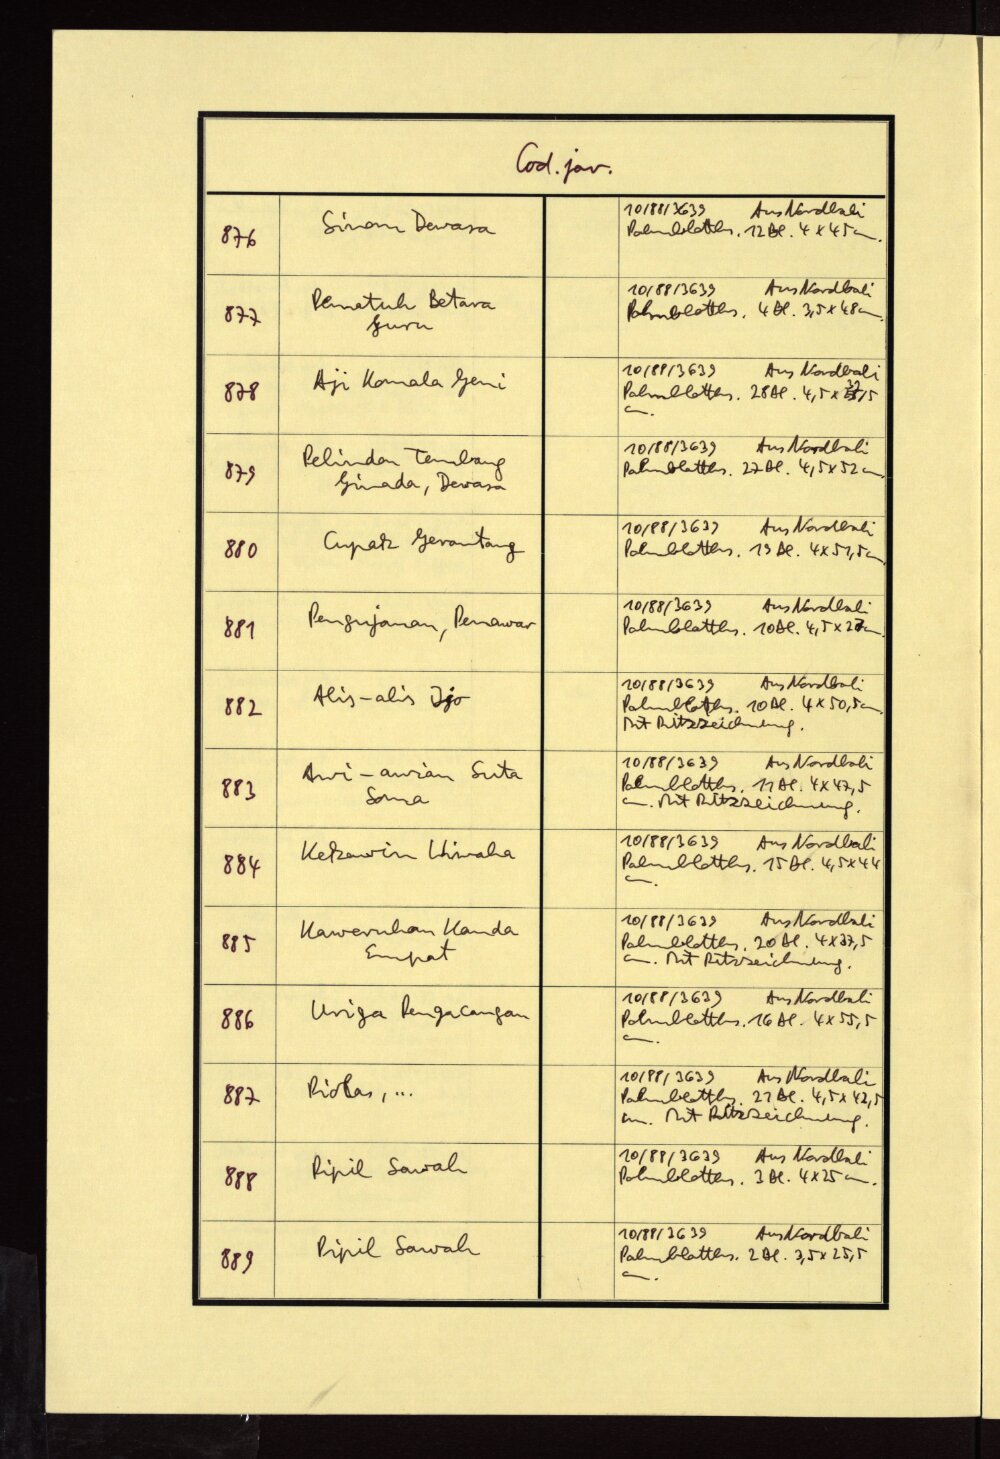 Cod. jav.
876
Sinom Dewasa
10/88/3639 Aus Nordbali
Palmblatths. 12 Bl. 4 x 45 cm.
877
Pematuh Betara
Guru
10/88/3639 Aus Nordbali
Palmblatths. 4 Bl. 3,5 x 48 cm.
878
Aji Komala Geni
10/88/3639 Aus Nordbali
Palmblatths. 28 Bl. 4,5 x
cm.
879
Pelindon Tembang
Ginada, Dewasa
10/88/3639 Aus Nordbali
Palmblatths. 27 Bl. 4,5 x 52 cm
880
Cupak Gerantang
10/88/3639 Aus Nordbali
Palmblatths. 19 Bl. 4 x 51,5 cm.
881
Pengujanan, Penawar
10/88/3639 Aus Nordbali
Palmblatths. 10 Bl. 4,5 x 27 cm.
882
Alis-alis Ijo
10/88/3639 Aus Nordbali
Palmblatths. 10 Bl. 4 x 50,5 cm.
Mit Ritzzeichnung.
883
Awi-awian Suta
Soma
10/88/3639 Aus Nordbali
Palmblatths. 11 Bl. 4 x 47,5
cm. Mit Ritzzeichnung.
884
Kekawin Uiwaha
10/88/3639 Aus Nordbali
Palmblatths. 15 Bl. 4,5 x 44
cm.
885
Kaweruhan Kanda
Empat
10/88/3639 Aus Nordbali
Palmblatths. 20 Bl. 4 x 37,5
cm. Mit Ritzzeichnung.
886
Uriga Pengacangan
10/88/3639 Aus Nordbali
Palmblatths. 16 Bl. 4 x 55,5
cm.
887
10/88/3639 Aus Nordbali
Palmblatths. 21 Bl. 4,5 x 42,5
cm. Mit Ritzzeichnung.
888
Pipil Sawah
10/88/3639 Aus Nordbali
Palmblatths. 3 Bl. 4 x 25 cm.
889
Pipil Sawah
10/88/3639 Aus Nordbali
Palmblatths. 2 Bl. 3,5 x 25,5
cm.